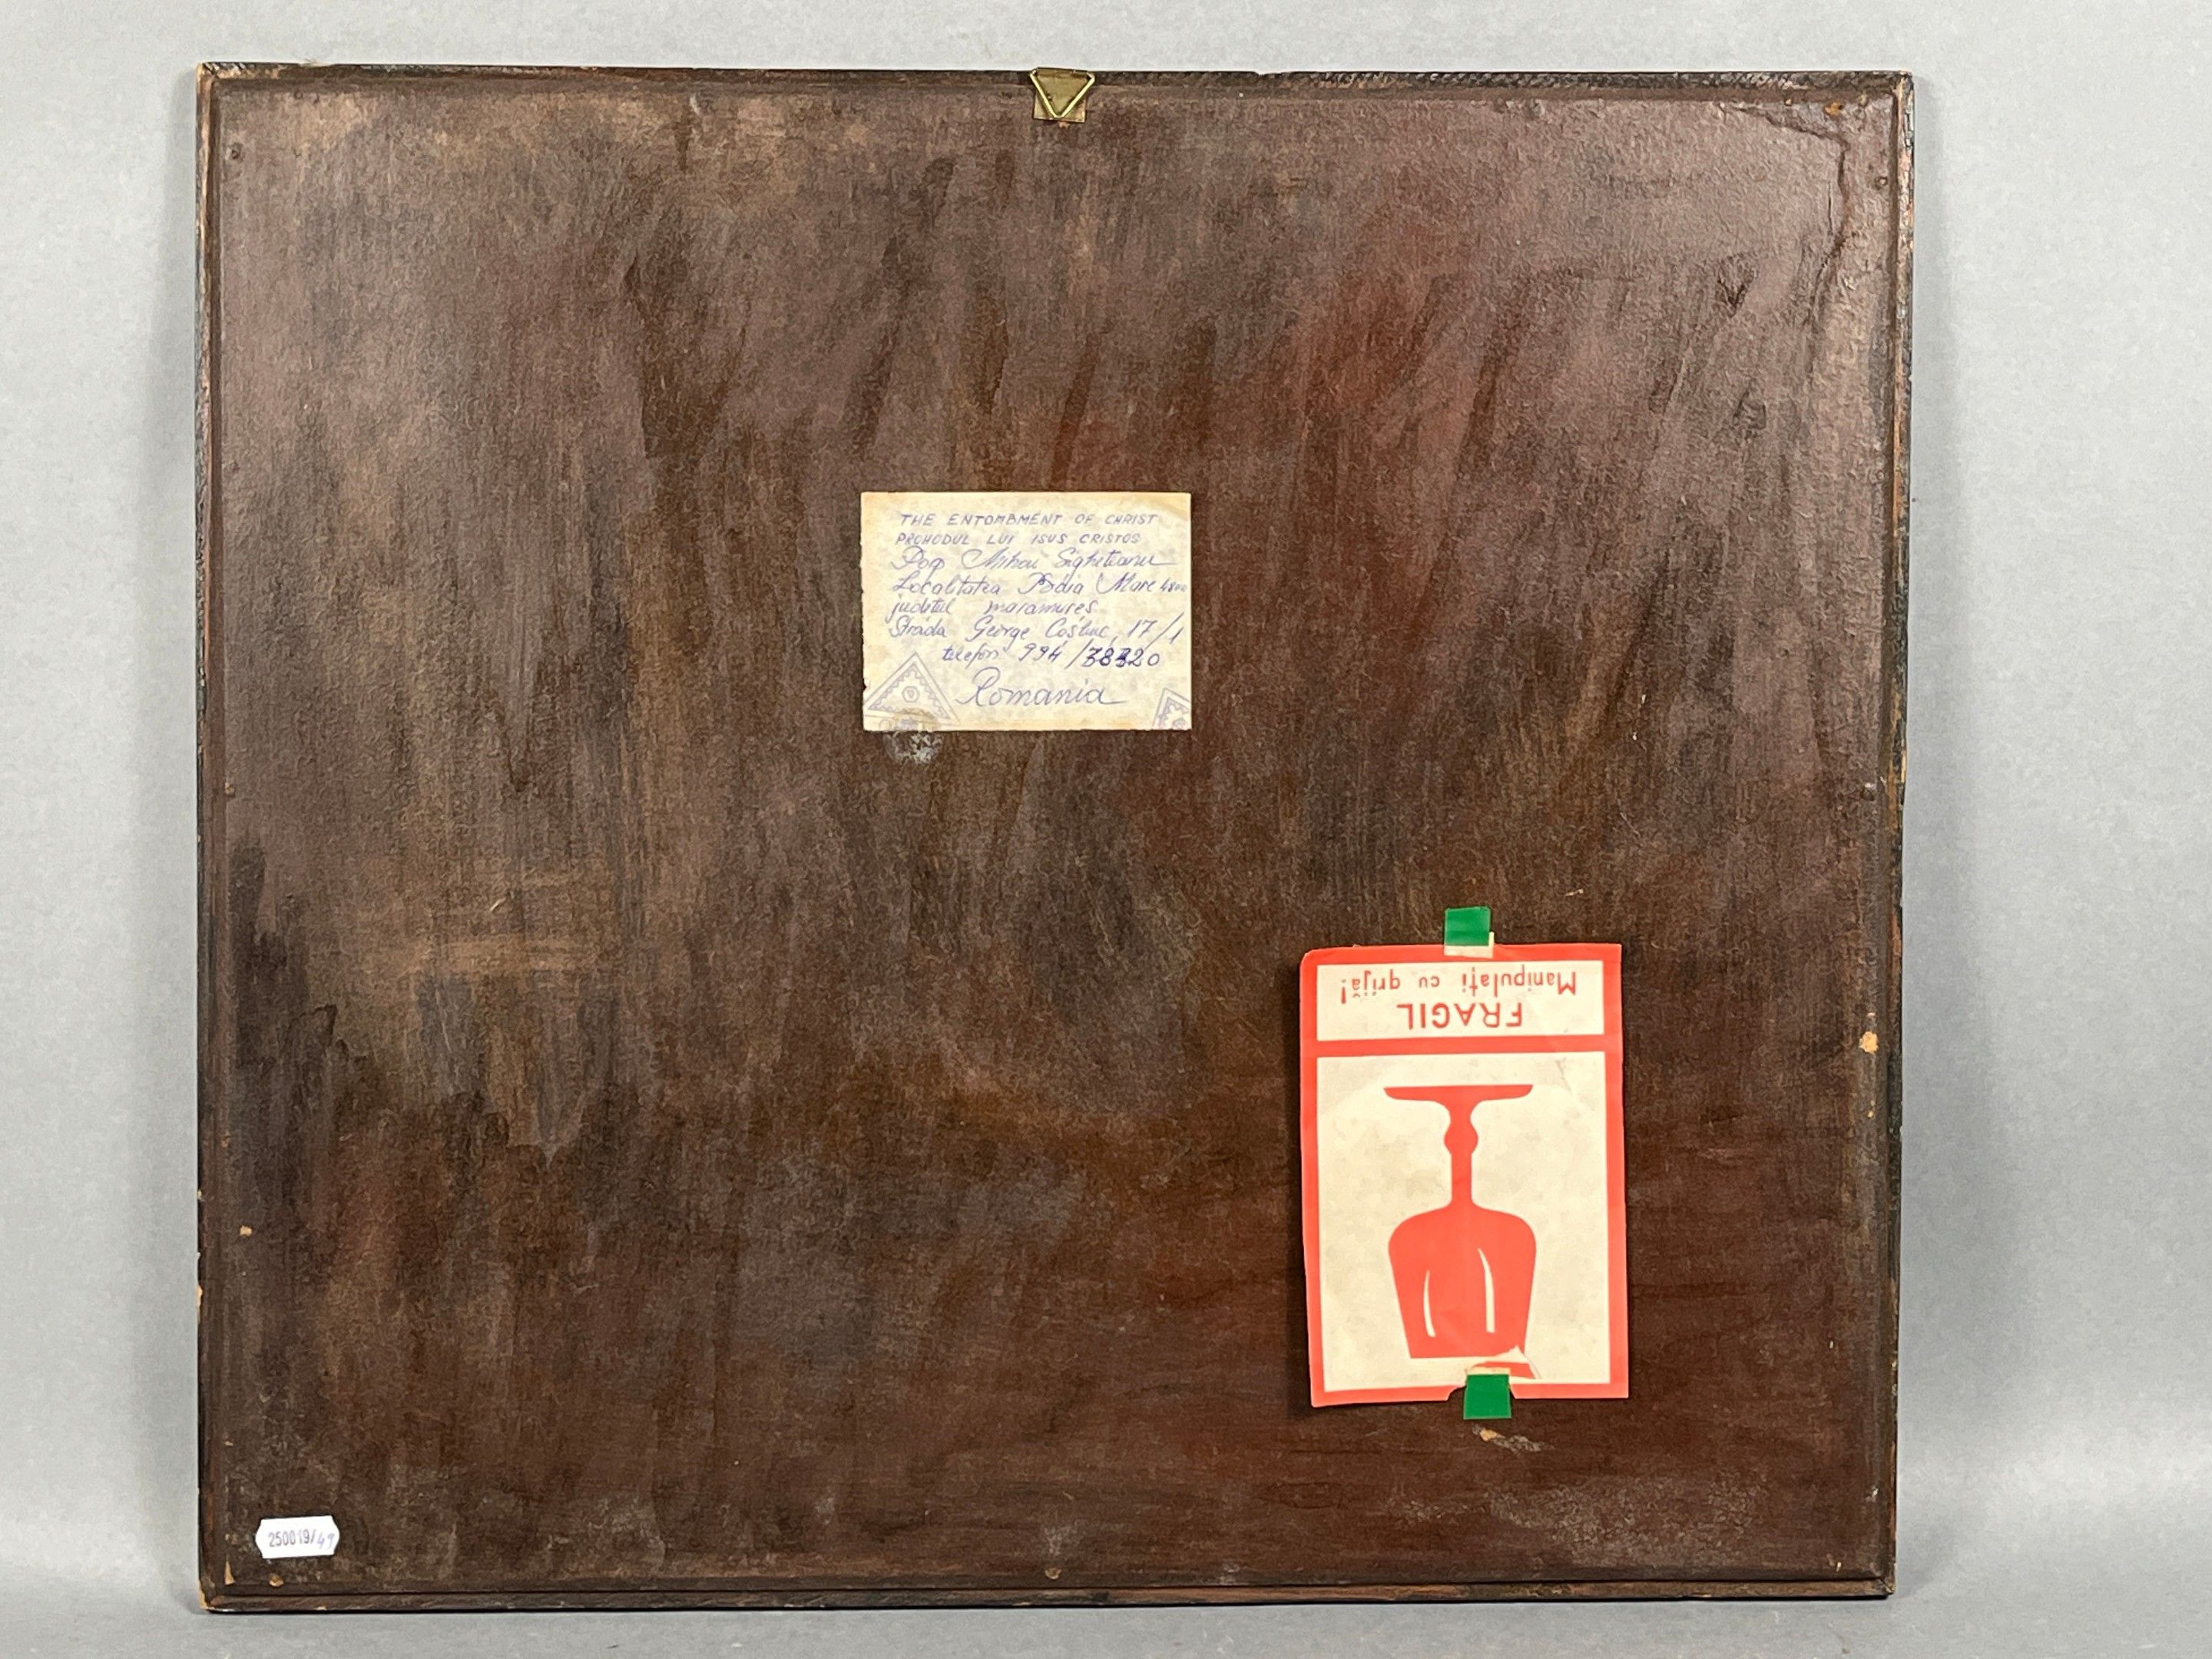 THE ENTOMBMENT OF CHRIST
PROHODUL LUI ISUS CRISTOS
Pop Mihai Sigheteanu
Localitatea Badia Mare 4800
judetul maramures
Strada George Cosbuc, 17/1
telefon 994/38320
Romania
FRAGIL
Manipulați cu grijă!
250019/49